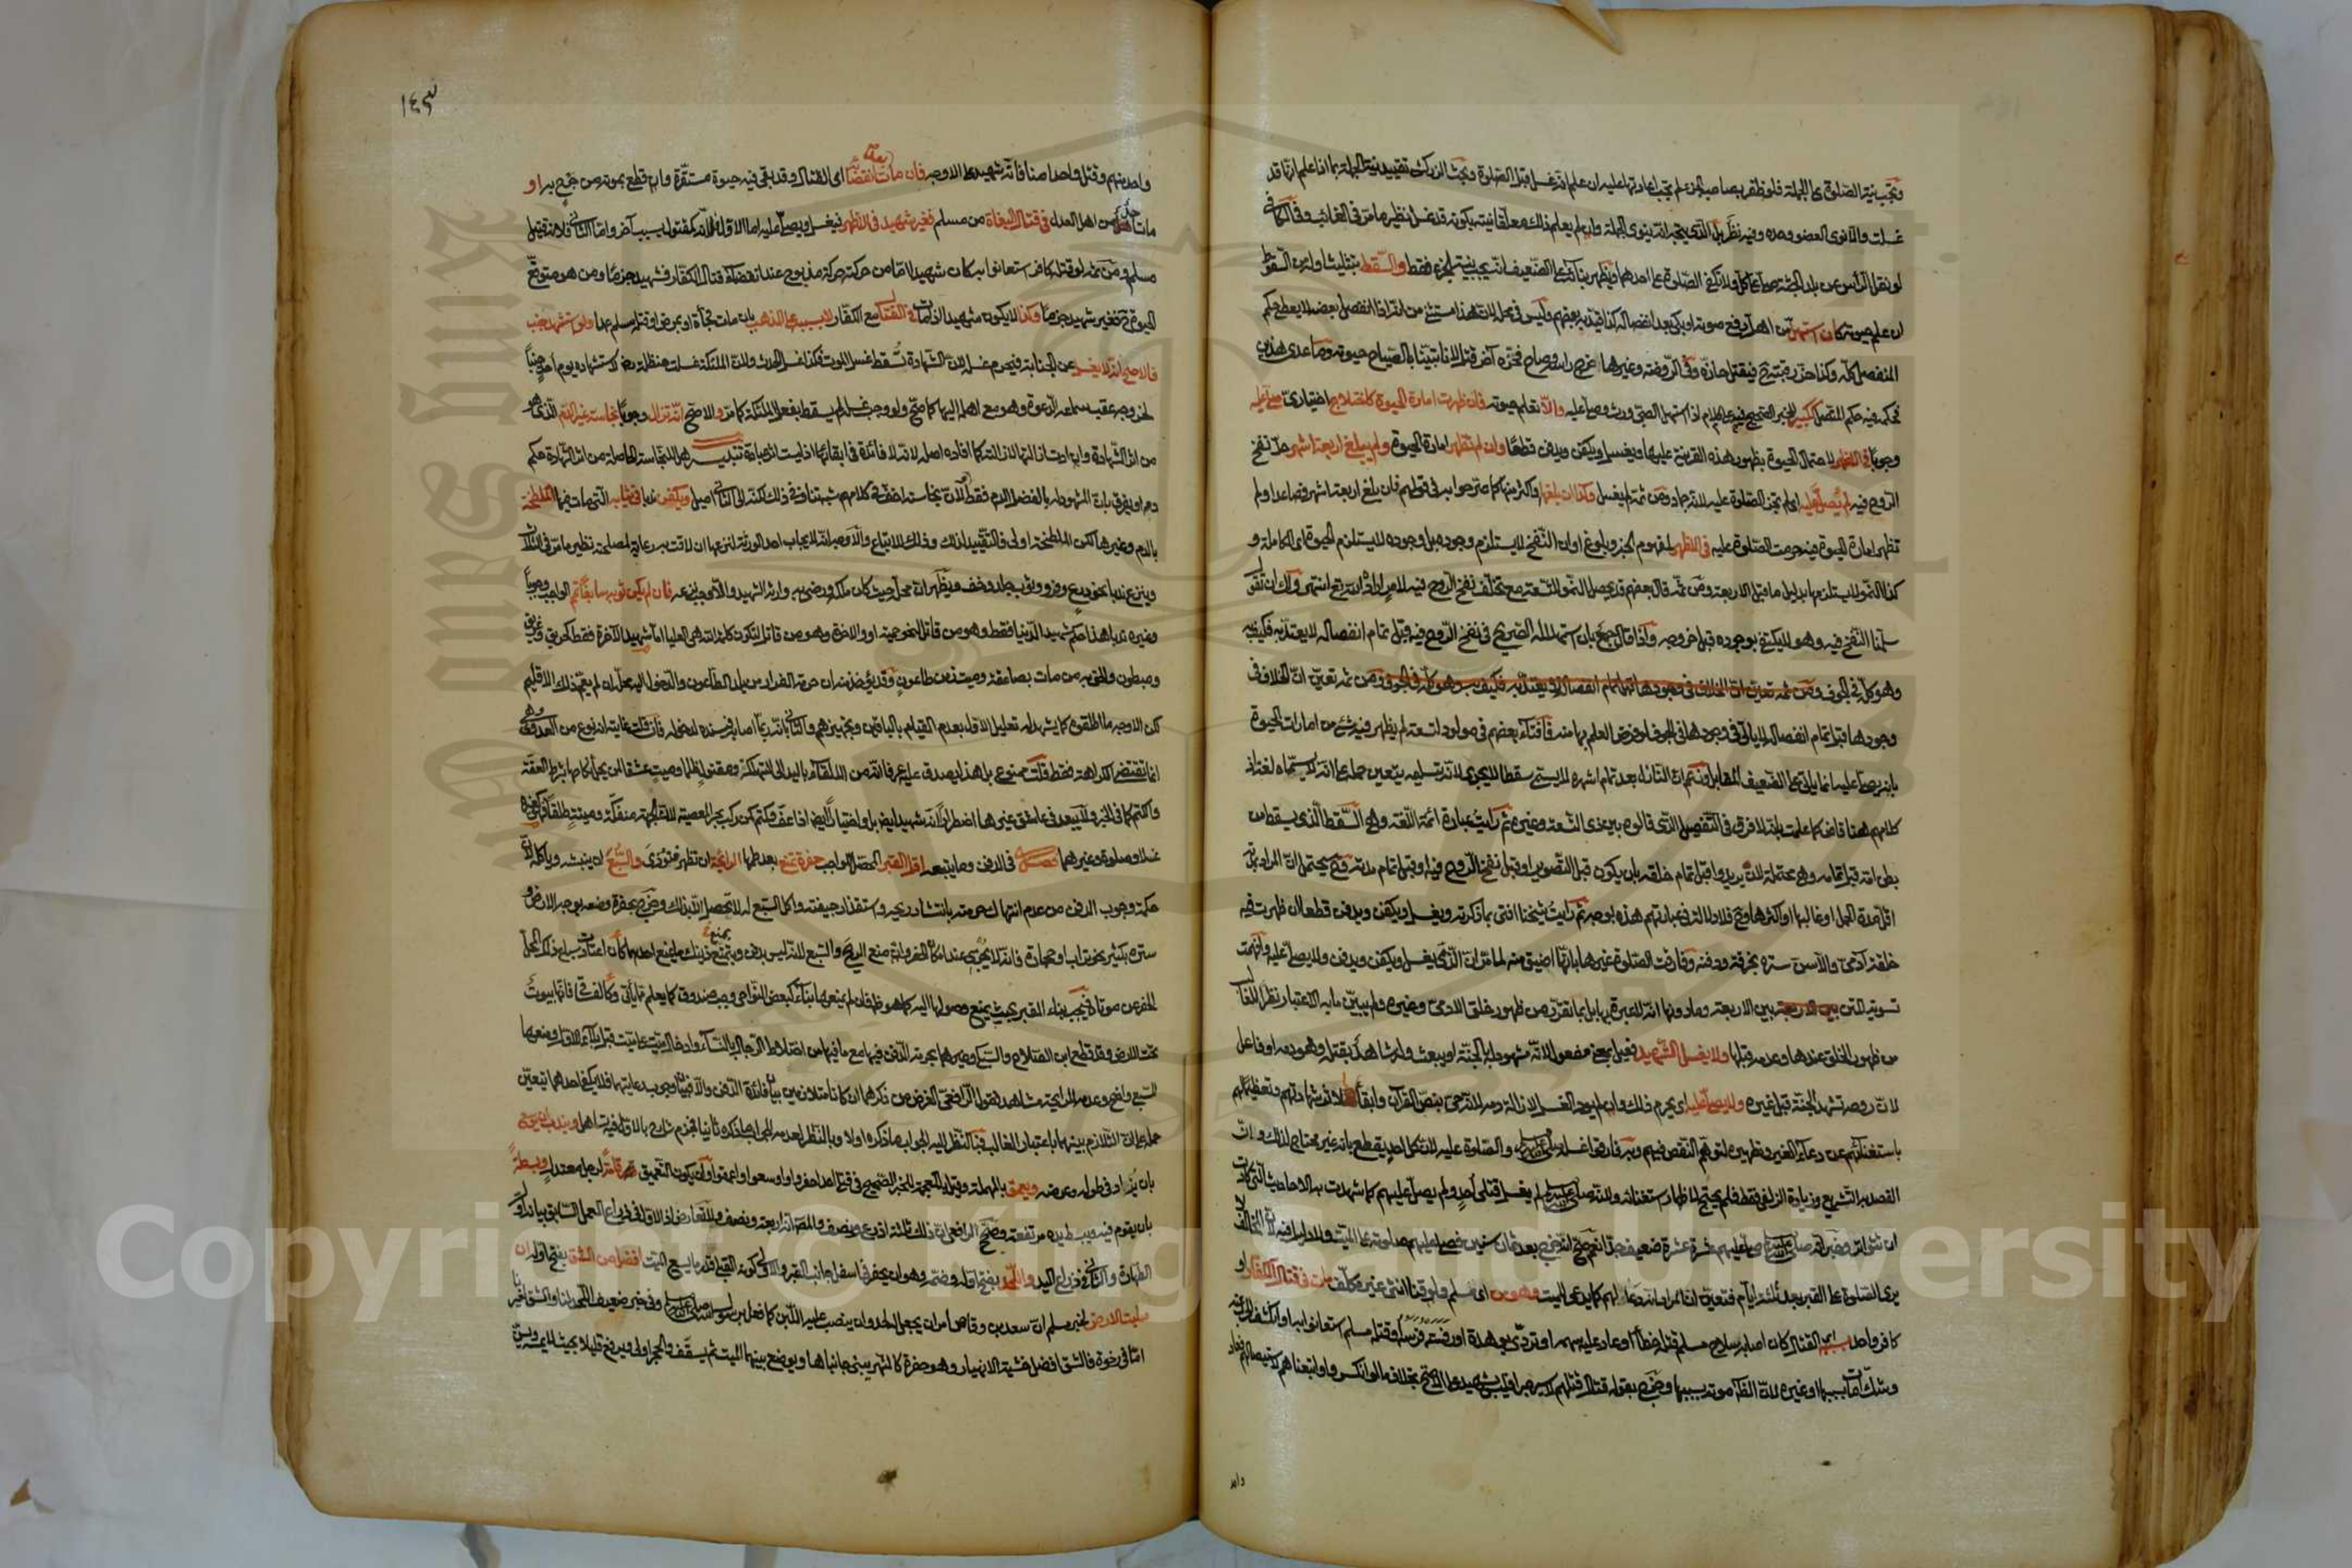 وتجب نية الصلوة على الجملة فلو ظفر بصاحب الجزء لم تجب اعادتها عليه ان علم انه غسل قبل الصلوة وبحث الزركشي تقييد نية الجملة بما اذا علم انها قد
غسلت والا نوى العضو وحده وفيه نظر بل الذي يتجه انه ينوي الجملة وان لم يعلم ذلك معلقا نيته بكونه قد غسل نظير ما مر في الغائب وفي الكافي
لو نقل الرأس عن بلد الجثة صلي على كل ولا تكفي الصلوة على احدهما ويظهر بناؤه على الضعيف انه تجب نية الجزء فقط والسقط بتثليث اوله من السقوط
ان علم حيوته كأن استهل من اهل رفع صوته او بكى بعد انفصاله كذا قيد به بعضهم وليس في محله لان هذا مستثنى من انه اذا انفصل بعضه لا يعطى حكم
المنفصل كله وكذا حز رقبته فيقتل حازه وفي الروضة وغيرها اخرج رأسه وصاح فحزه آخر قتل لانا تبينا بالصياح حيوته وما عدى هذين
حكمه فيه حكم المتصل ككبير للخبر الصحيح اذا استهل الصبي ورث وصلي عليه والا تعلم حيوته فان ظهرت امارة الحيوة كاختلاج اختياري صلي عليه
وجوبا في الاظهر لاحتمال الحيوة بظهور هذه القرينة عليها ويغسل ويكفن ويدفن قطعا وان لم تظهر امارة الحيوة ولم يبلغ اربعة اشهر حد نفخ
الروح فيه لم يصل عليه اي لم تجز الصلوة عليه لانه جماد ومن ثمة لم يغسل وكذا ان بلغها واكثر منها كما صرحوا به في قولهم فان بلغ اربعة اشهر فصاعدا ولم
تظهر امارة الحيوة فيه حرمت الصلوة عليه في الاظهر لمفهوم الخبر وبلوغ اوان النفخ لا يستلزم وجوده بل وجوده لا يستلزم الحيوة اي الكاملة و
كذا النمو لا يستلزمها بدليل ما قبل الاربعة ومن ثمة قال بعضهم قد يحصل النمو للتسعة مع تخلف نفخ الروح فيه لامر اراده الله تع انتهى ولك ان تقول
سلمنا النفخ فيه وهو لا يكتفى بوجوده قبل خروجه وكذا قال جمع بان استهلاله الصريح في نفخ الروح فيه قبل تمام انفصاله لا يعتد به فكيف به
وهو كله في الجوف ومن ثمه تعين ان الخلاف في
وجودها قبل تمام انفصاله لا يأتي في وجودها في الجوف لو فرض العلم بها منه فافتاء بعضهم في مولود لتسعة لم يظهر فيه شيء من امارات الحيوة
بانه يصلى عليه انما يأتي على الضعيف المقابل وزعم ان النازل بعد تمام اشهره لا يسمى سقطا لا يجدي لانه بتسليمه يتعين حمله على انه لا يسماه لغة اذ
كلامهم هنا قاض كما علمت بانه لا فرق في التفصيل الذي قالوه بين ذي التسعة وغيره ثم رأيت عبارة ائمة اللغة وهي السقط الذي يسقط من
بطن امه قبل تمامه وهي محتملة لان يريدوا قبل تمام خلقه بان يكون قبل التصوير او قبل نفخ الروح فيه او قبل تمام مدته فتح يحتمل ان المراد بها
اقل مدة الحمل او غالبها او اكثرها وح فلا دلالة في عبارتهم هذه بوجه ثم رأيت شيخنا افتى بما ذكرته ويغسل ويكفن ويدفن قطعا ان ظهرت فيه
خلقة آدمي والا سن ستره بخرقة ودفنه وفارقت الصلوة غيرها بانها اضيق منه لما مر ان الذمي يغسل ويكفن ويدفن ولا يصلى عليه وافهمت
تسويته المتن بين الاربعة وما دونها انه لا عبرة بها بل بما تقرر من ظهور خلق الادمي وغيره ولم يبين مابه الاعتبار نظرا لما
من ظهور الخلق عندها وعدمه قبلها ولا يغسل الشهيد فعيل بمعنى مفعول لانه مشهود له بالجنة او يبعث وله شاهد بقتله وهو دمه او فاعل
لان روحه تشهد الجنة قبل غيره ولا يصلى عليه اي يحرم ذلك وان لم يؤد الغسل لازالة دمه لانه حي بنص القرآن وابقاء لاثر شهادتهم وتعظيما لهم
باستغنائهم عن دعاء الغير وتطهيره لتوهم النقص فيهم وبه فارقوا غسله صلى الله عليه وسلم والصلوة عليه لان كل احد يقطع بانه غير محتاج لذلك وان
القصد به التشريع وزيادة الزلفى فقط فلم يحتج لاظهار استغنائه ولانه صلى الله عليه وسلم لم يغسل قتلى احد ولم يصل عليهم كما شهدت به الاحاديث التي كادت
ان تتواتر وخبر انه صلى الله عليه وسلم صلى عليهم عشرة عشرة ضعيف جدا نعم صح انه خرج بعد ثمان سنين فصلى عليهم صلوته على الميت ولا دليل فيه لان المخالف
يرى الصلوة على القبر بعد ثلثة ايام فتعين ان المراد انه دعا لهم كما يدعى للميت وهو من اي مسلم ولو قنا انثى غير مكلف مات في قتال الكفار او
كافر واحد بسببه اي القتال كأن اصابه سلاح مسلم قتله خطأ او عاد عليه سهمه او تردى بوهدة او رفسته فرسه او قتله مسلم استعانوا به او انكشف الحرب عنه
وشك أمات بسببها او غيره لان الظاهر موته بسببها وخرج بقوله قتال قتلهم لاسير صبرا فليس بشهيد على الاصح بخلاف ما لو انكسروا واتبعناهم لاستيصالهم فعاد
واحد
١٤٣
واحد منهم وقتل واحدا منا فانه شهيد على الاوجه فان مات بعد انقضائه اي القتال وقد بقي فيه حيوة مستقرة وان قطع بموته من جرح به او
مات عادل من اهل العدل في قتال البغاة من مسلم فغير شهيد في الاظهر فيغسل ويصلى عليه اما الاول فلانه كمقتول بسبب آخر واما الثاني فلانه قتيل
مسلم ومن ثمه لو قتله كافر استعانوا به كان شهيدا اما من حركته حركة مذبوح عند انقضاء قتال الكفار فشهيد جزما ومن هو متوقع
الحيوة ح فغير شهيد جزما وكذا لا يكون شهيدا اذا مات في القتال مع الكفار لا بسببه على المذهب بان مات فجأة او بمرض او قتله مسلم عمدا ولو استشهد جنب
فالاصح انه لا يغسل عن الجنابة فيحرم غسله لان الشهادة تسقط غسل الموت فكذا غسل الحدث ولان الملئكة غسلت حنظلة رض لاستشهاده يوم احد جنبا
لخروجه عقب سماعه الدعوة وهو مع اهله اليها كما صح ولو وجب غسله لم يسقط بفعل الملئكة كما مر والاصح انه تزال وجوبا نجاسته غير الدم الذي هو
من اثر الشهادة وان ادت ازالتها لازالته كما افاده اصله لانه لا فائدة في ابقائها اذ ليست اثر عبادة تنبيه هل النجاسة الحاصلة من اثر الشهادة حكم
دم او يفرق بان المشهود له بالفضل الدم فقط ولان نجاسته اخف في كلامهم شبه تناف في ذلك لكنه الى الثاني اميل ويكفن ندبا في ثيابه التي مات فيها الملطخة
بالدم وغيرها لكن الملطخة اولى فالتقييد لذلك وذلك للاتباع والاوجه انه لا يجاب احد الورثة لنزعها ان لاقت به رعاية لمصلحته نظير ما مر في الثلاث
وينزع ندبا نحو درع وفرو وثوب جلد وخف ويظهر ان محله حيث كان ملكه ورضي به وارثه الرشيد والا وجب نزعه فان لم يكن ثوبه سابغا تمم الواجب وجوبا
وغيره ندبا هذا حكم شهيد الدنيا فقط وهو من قاتل لنحو حمية او والاخرة وهو من قاتل لتكون كلمة الله هي العليا اما شهيد الاخرة فقط كحريق وغريق
ومبطون والحق به من مات بصاعقة وميت زمن طاعون وقد يؤخذ منه ان حرمة الفرار من بلد الطاعون والدخول اليه محله ان لم يعم ذلك الاقليم
لكن الاوجه ما اطلقوه كما يشهد له تعليل الاول بعدم القيام بالباقين وتجهيزهم والثاني بانه ربما اصابه فيسنده لدخوله فان قلت غايته انه نوع من العدوى وهي
انما تقتضي الكراهة فقط قلت ممنوع بل هذا يصدق عليه عرفا انه من الالقاء باليد الى التهلكة ومقتول ظلما وميت عشقا لمن يحل نكاحها بشرط العفة
والكتم كما في الخبر ولا يبعد في عاشق غيرها اضطرارا انه شهيد ايضا بل واختيارا ايضا اذا عف وكتم كمن ركب بحرا لمعصية لان الجهة منفكة وميتة طلقا فكغيره
غسلا وصلوة وغيرهما فصل في الدفن وما يتبعه اقل القبر المحصل للواجب حفرة تمنع بعد طمها الرائحة ان تظهر فتؤذي والسبع ان ينبشه ويأكله لان
حكمة وجوب الدفن من عدم انتهاك حرمته بانتشار ريحه واستقذار جيفته واكل السبع له لا تحصل الا بذلك وخرج بحفرة وضعه بوجه الارض و
ستره بكثير نحو تراب او حجارة فانه لا يجزي عند امكان الحفر وان منع الريح والسبع لانه ليس بدفن وبتمنع ذينك ما يمنع احدهما كأن اعتادت سباع ذلك المحل
الحفر عن موتاه فيجب بناء القبر بحيث يمنع وصولها اليه كما هو ظ فان لم يمنعها بناء كبعض النواحي وجب صندوق كما يعلم مما يأتي وكالفساقي فانها بيوت
تحت الارض وقد قطع ابن الصلاح والسبكي وغيرهما بحرمة الدفن فيها مع ما فيها من اختلاط الرجال بالنساء وادخال ميت على ميت قبل بلاء الاول ومنعها
السبع واضح وعدم الرائحة مشاهد فقول الرافعي الغرض من ذكرهما ان كانا متلازمين بيان فائدة الدفن والا فبيان وجوب رعايتهما فلا يكفي احدهما يتعين
حمله على ان التلازم بينهما باعتبار الغالب فبالنظر اليه الجواب ما ذكره اولا وبالنظر لعدمه الجواب ما ذكره ثانيا فجزم شارح بالاول فيه تساهل ويندب ان يوسع
بان يزاد في طوله وعرضه ويعمق بالمهملة وقيل بالمعجمة للخبر الصحيح في قتلى احد احفروا واوسعوا واعمقوا وان يكون التعميق قدر قامة لرجل معتدل وبسطة
بان يقوم فيه ويبسط يده مرتفعة وصحح الرافعي ان ذلك ثلاثة اذرع ونصف والمصنف انه اربعة ونصف ولا تعارض اذ الاول في ذراع العمل السابق بيانه اول
الطهارة والثاني في ذراع اليد واللحد بفتح اوله وضمه وهو ان يحفر في اسفل جانب القبر والاولى كونه القبلي قدر ما يسع الميت افضل من الشق بفتح اوله ان
صلبت الارض لخبر مسلم ان سعد بن وقاص امر ان يجعل له لحد وان ينصب عليه اللبن كما فعل برسول الله صلى الله عليه وسلم وفي خبر ضعيف اللحد لنا والشق لغيرنا
اما في رخوة فالشق افضل خشية الانهيار وهو حفرة كالنهر يبنى جانباها ويوضع بينهما الميت ثم يسقف والحجر اولى ويرفع قليلا بحيث لا يمسه ويسن
Copyright © King Saud University
King Saud University
1957